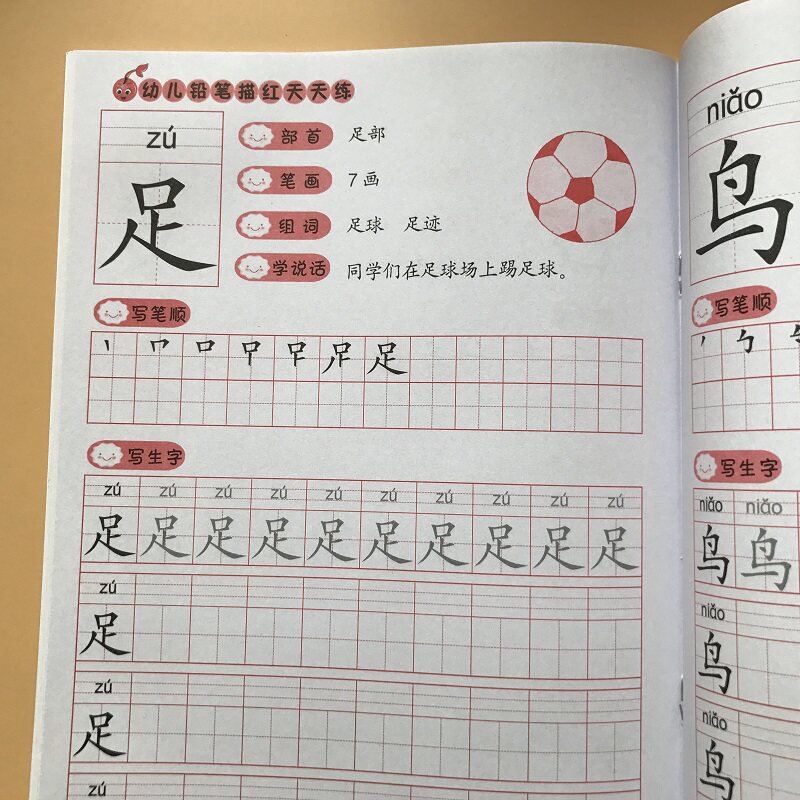 幼儿铅笔描红天天练
zú
足
部首 足部
笔画 7画
组词 足球 足迹
学说话 同学们在足球场上踢足球。
写笔顺
足
写生字
zú zú zú zú zú zú zú zú zú zú
足 足 足 足 足 足 足 足 足 足
zú
足
zú
足
zú
niǎo
鸟
写笔顺
写生字
niǎo niǎo
鸟 鸟
niǎo
鸟
niǎo
鸟